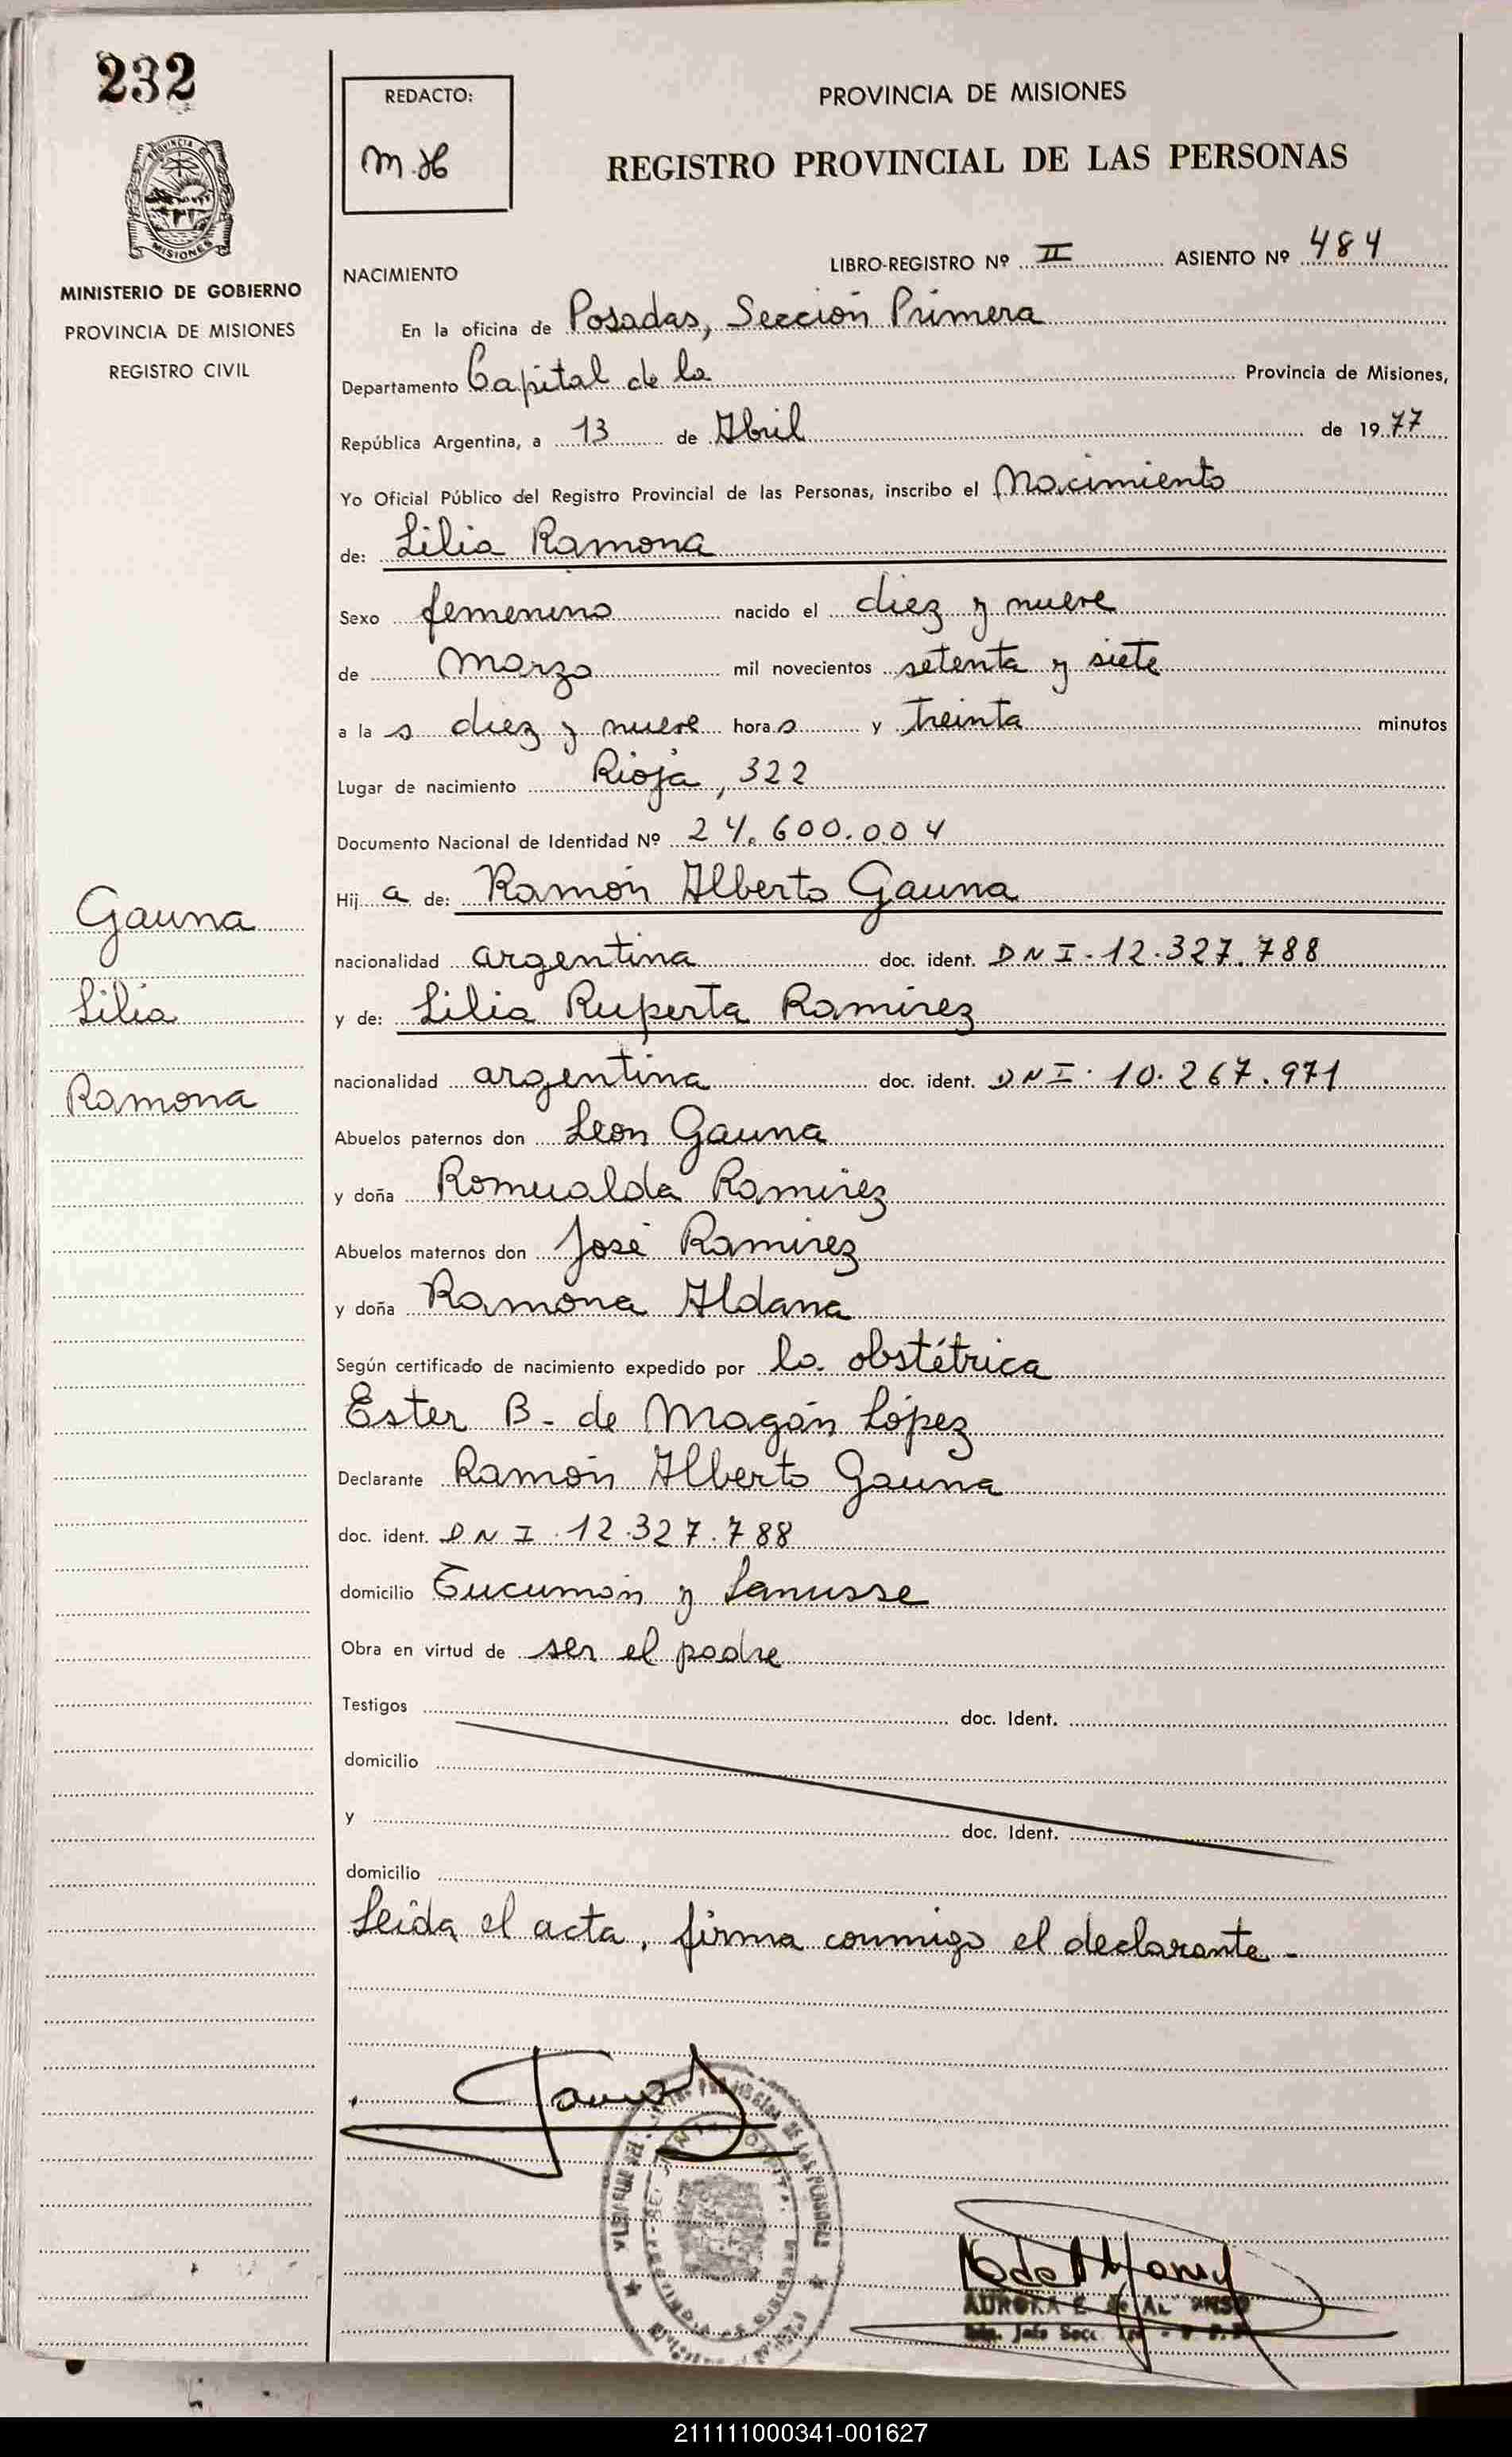 232
PROVINCIA
MISIONES
MINISTERIO DE GOBIERNO
PROVINCIA DE MISIONES
REGISTRO CIVIL
Gauna
Lilia
Ramona
REDACTO:
M.H
PROVINCIA DE MISIONES
REGISTRO PROVINCIAL DE LAS PERSONAS
NACIMIENTO LIBRO-REGISTRO Nº II ASIENTO Nº 484
En la oficina de Posadas, Sección Primera
Departamento Capital de la Provincia de Misiones,
República Argentina, a 13 de Abril de 1977
Yo Oficial Público del Registro Provincial de las Personas, inscribo el Nacimiento
de: Lilia Ramona
Sexo femenino nacido el diez y nueve
de marzo mil novecientos setenta y siete
a la s diez y nueve hora s y treinta minutos
Lugar de nacimiento Rioja, 322
Documento Nacional de Identidad Nº 24.600.004
Hij a de: Ramón Alberto Gauna
nacionalidad argentina doc. ident. DNI. 12.327.788
y de: Lilia Ruperta Ramírez
nacionalidad argentina doc. ident. DNI. 10.267.971
Abuelos paternos don Leon Gauna
y doña Romualda Ramírez
Abuelos maternos don José Ramírez
y doña Ramona Aldana
Según certificado de nacimiento expedido por la obstétrica
Ester B. de Magán López
Declarante Ramón Alberto Gauna
doc. ident. DNI. 12.327.788
domicilio Tucumán y Lanusse
Obra en virtud de ser el padre
Testigos doc. Ident.
domicilio
y doc. Ident.
domicilio
Leída el acta, firma conmigo el declarante -
AURORA E. de
211111000341-001627